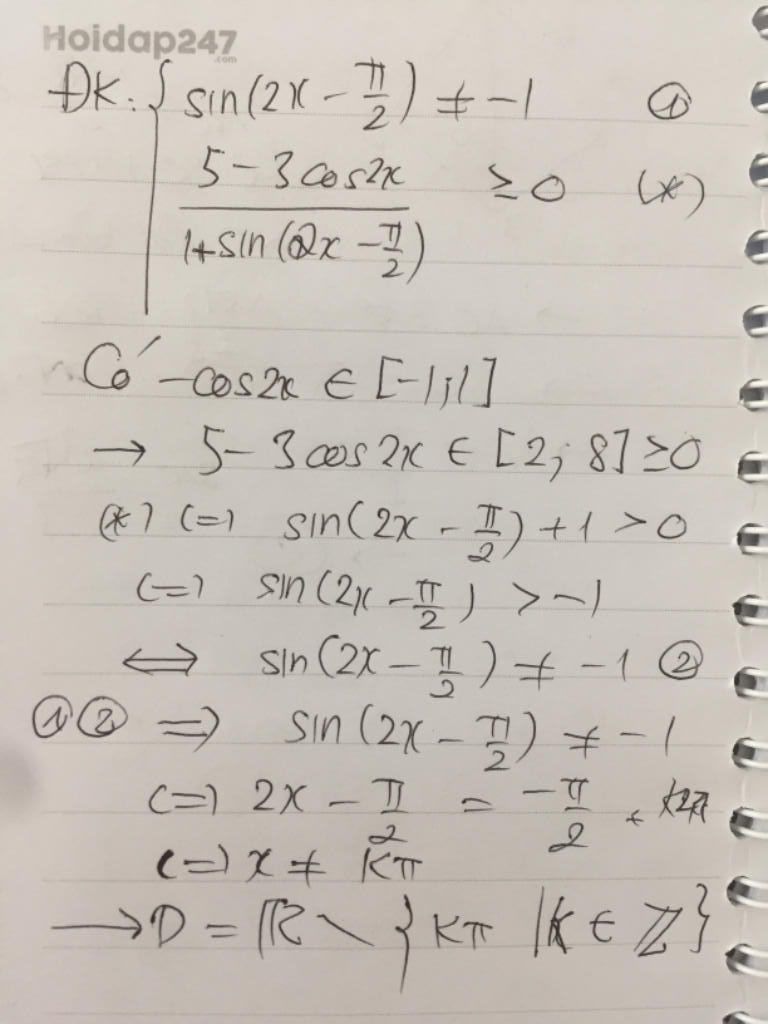 Hoidap247
.com
ĐK: { sin(2x - π/2) ≠ -1 ①
(5 - 3cos2x)/(1 + sin(2x - π/2)) ≥ 0 (*)
Có -cos2x ∈ [-1;1]
→ 5 - 3cos2x ∈ [2; 8] ≥ 0
(*) (=) sin(2x - π/2) + 1 > 0
(=) sin(2x - π/2) > -1
⟺ sin(2x - π/2) ≠ -1 ②
①② ⇒ sin(2x - π/2) ≠ -1
(=) 2x - π/2 = -π/2 + k2π
(=) x ≠ kπ
→ D = ℝ \ } kπ | k ∈ ℤ }